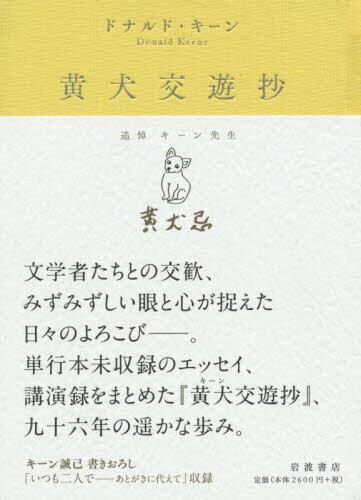 ドナルド・キーン
Donald Keene
黄犬交遊抄
追悼 キーン先生
黄犬忌
文学者たちとの交歓、
みずみずしい眼と心が捉えた
日々のよろこび——。
単行本未収録のエッセイ、
キーン
講演録をまとめた『黄犬交遊抄』、
九十六年の遥かな歩み。
キーン誠己 書きおろし
「いつも二人で——あとがきに代えて」収録
岩波書店
定価(本体2600円+税)